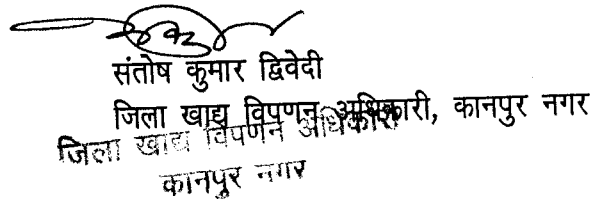 संतोष कुमार द्विवेदी
जिला खाद्य विपणन अधिकारी, कानपुर नगर
जिला खाद्य विपणन अधिकारी
कानपुर नगर